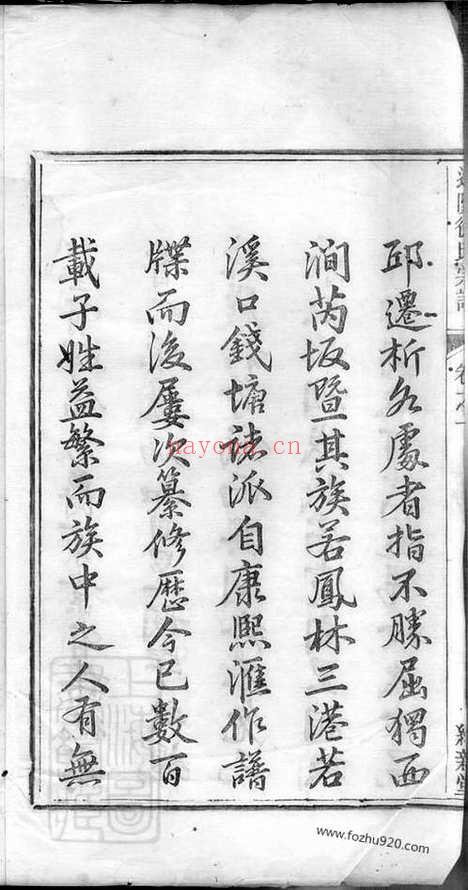 邱遷析各處者指不勝屈獨西
澗芮坂暨其族若鳳林三港若
溪口錢塘諸派自康熙滙作譜
牒而後屢次纂修歷今已數百
載子姓益繁而族中之人有無
nayona.cn
www.fozhu920.com